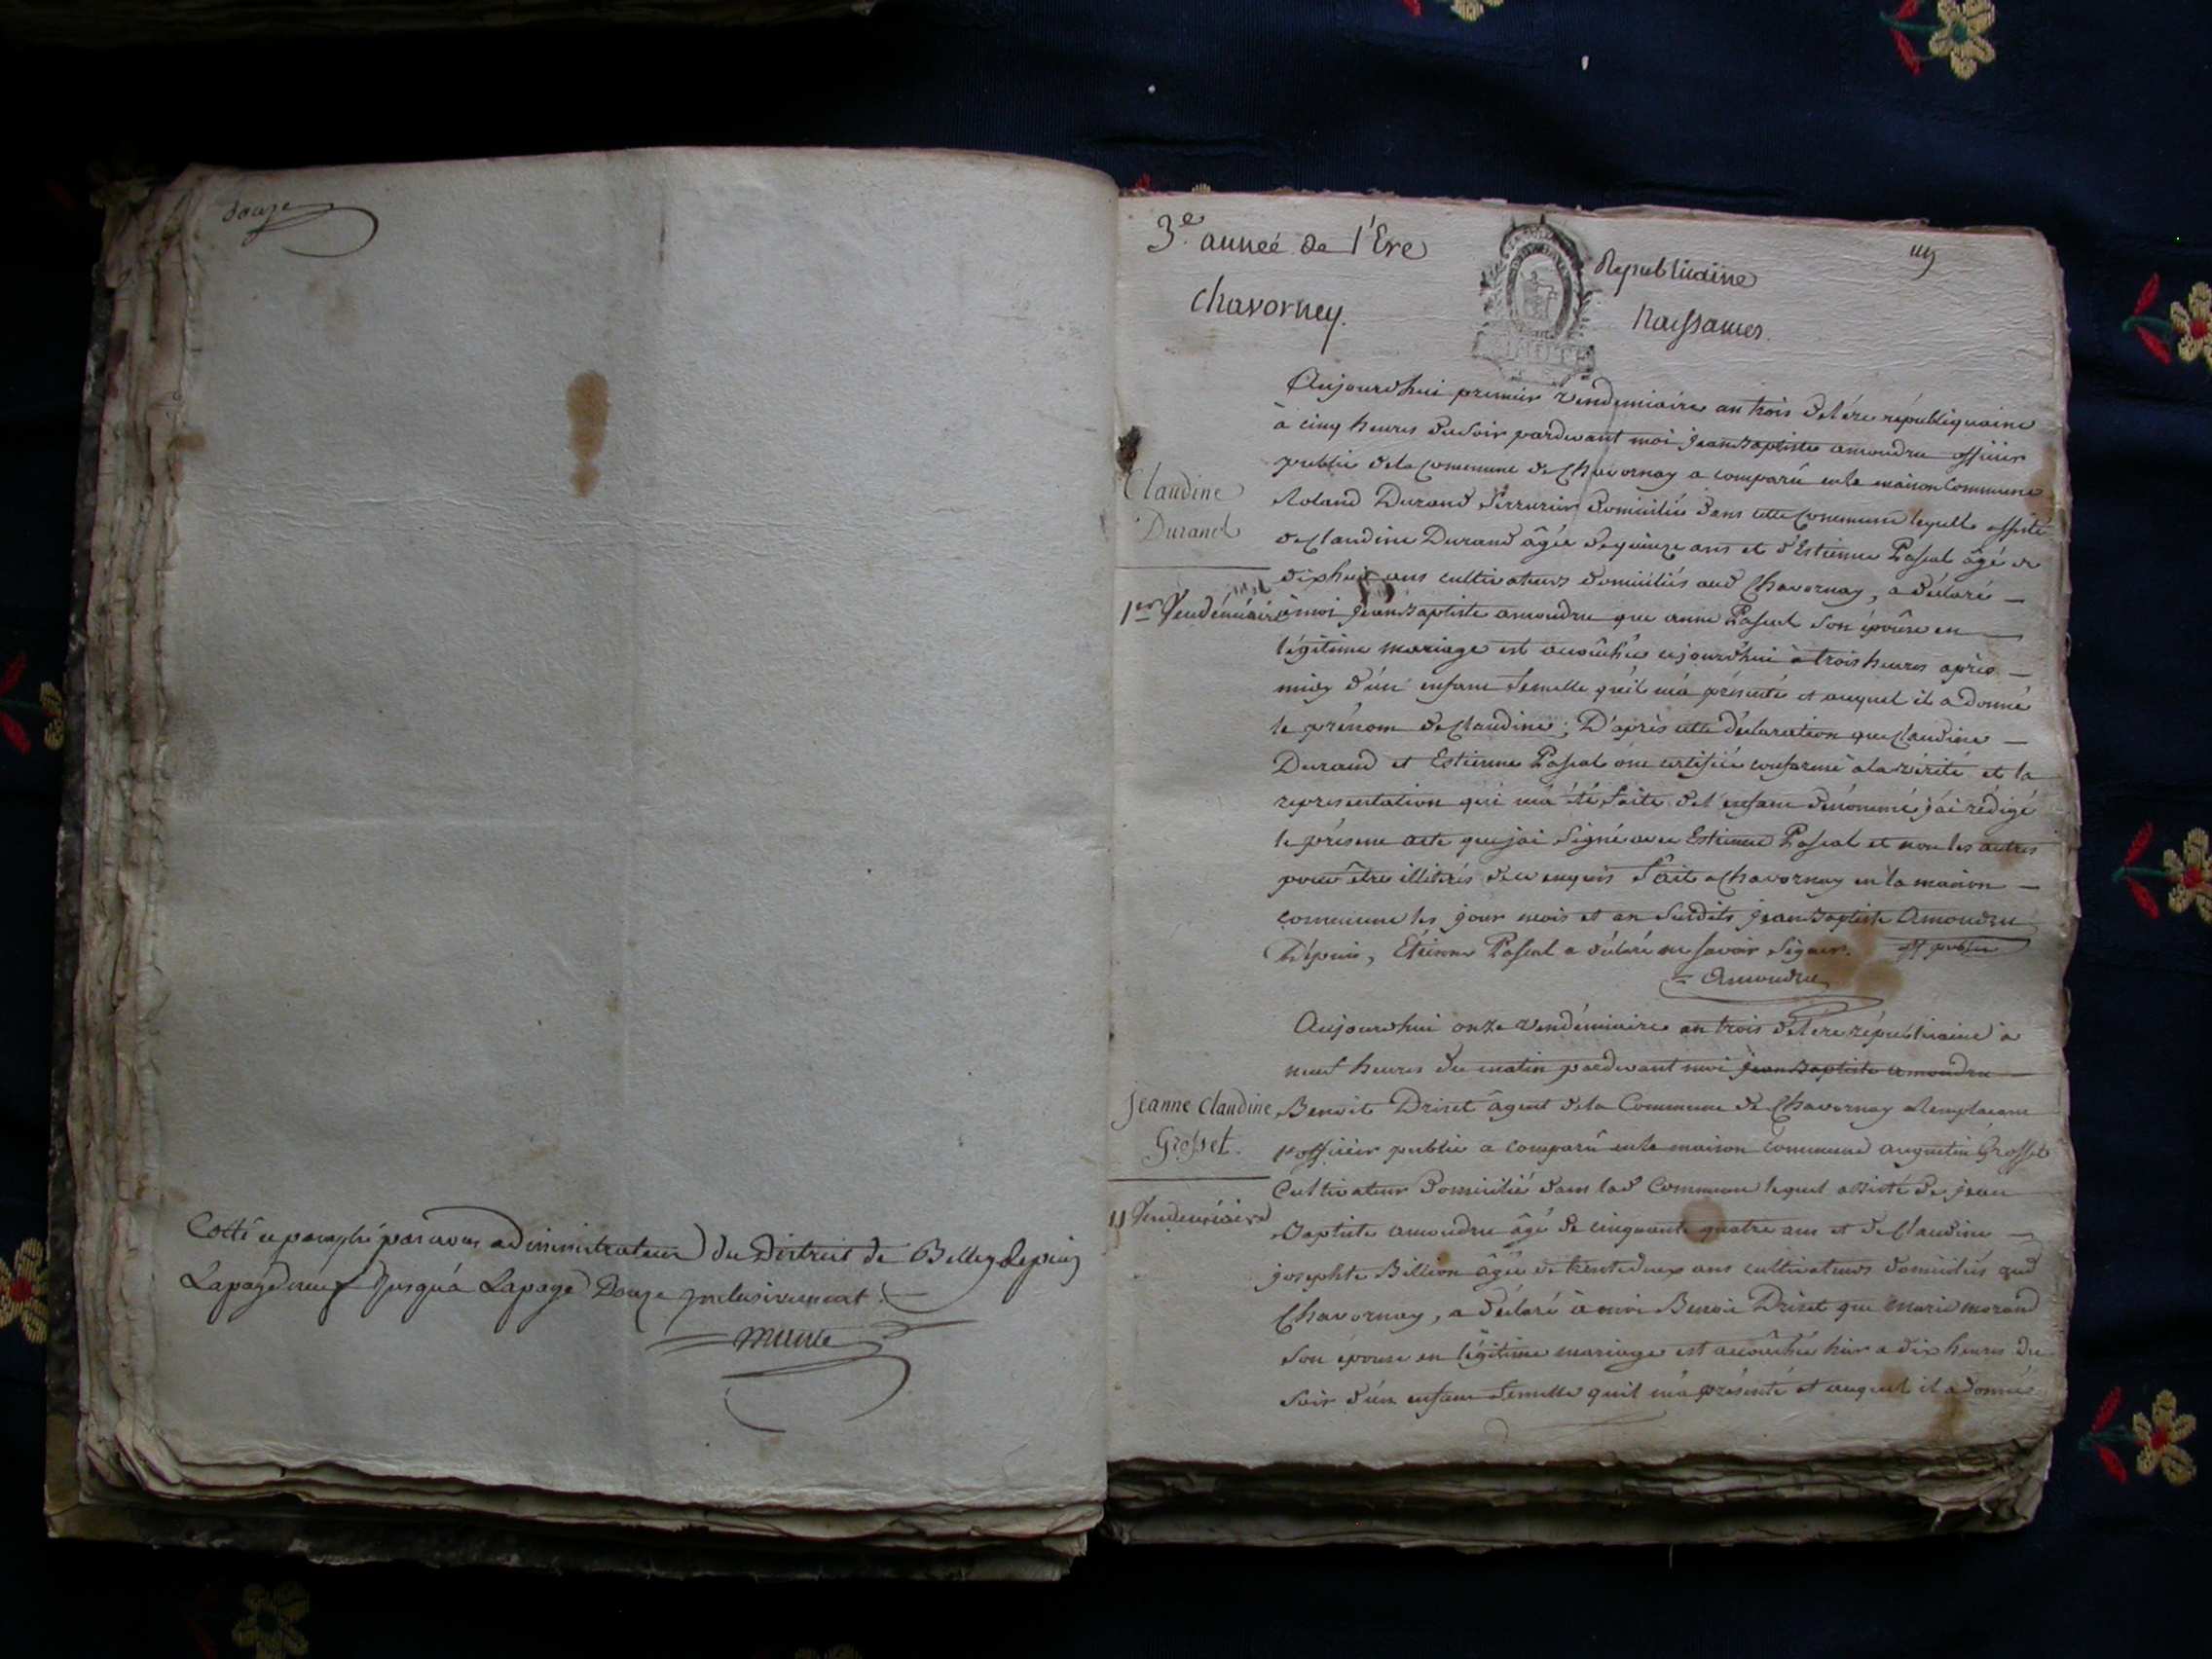 douze
Cotté et paraphé par nous administrateur du District de Belley depuis
Lapage neuf Jusqu'a Lapage Douze Inclusivement.
3e. année de l'Ere Republicaine
Chavornay. Naissances.
Aujourdhui premier Vendemiaire an trois del'ére républiquaine
à cinq heures du soir pardevant moi jean Baptiste amoudru officier
public dela Commune de Chavornay a comparû en la maison Commune
Claudine
Durand
Roland Durand Serrurier Domicilié dans cette Commune lequel assisté
de Claudine Durand âgée de quinze ans et d'Estienne Pascal âgé de
dixhuit ans cultivateurs domiciliés aud Chavornay, a déclaré —
1er Vendémiaire
à moi jean Baptiste amoudru que anne Pascal son épouse en —
légitime mariage est acouchée aujourd'hui à trois heures après —
midy d'un enfant femelle qu'il m'a présenté et auquel il a donné
le prénom de Claudine; D'après cette déclaration que Claudine —
Durand et Estienne Pascal ont certifiée conforme a la vérité et la
representation qui m'a été faite del'enfant dénommé j'ai rédigé
le présent acte que j'ai signé avec Estienne Pascal et non les autres
pour être illiterés de ce enquis fait a Chavornay en la maison —
commune les jour mois et an susdits jean Baptiste Amoudru
off public
Dépuis, Etienne Pascal a déclaré ne savoir signer.
Amoudru
Aujourdhui onze vendémiaire an trois del'ere républicaine à
neuf heures du matin pardevant moi jean Baptiste amoudru
Jeanne Claudine
Grosset.
Benoit Drizet agent dela Commune de Chavornay remplacant
l'officier public a comparû en la maison commune augustin Grosset
Cultivateur Domicilié dans lad Commune lequel assisté de jean
11 Vendemiaire
Baptiste amoudru âgé de cinquante quatre ans et de Claudine —
josephte Billion âgée de trente deux ans cultivateurs domiciliés aud
Chavornay, a déclaré à moi Benoit Drizet que Marie morand
son épouse en légitime mariage est acouchée hier a dix heures du
soir d'un enfant femelle quil m'a présenté et auquel il a donné